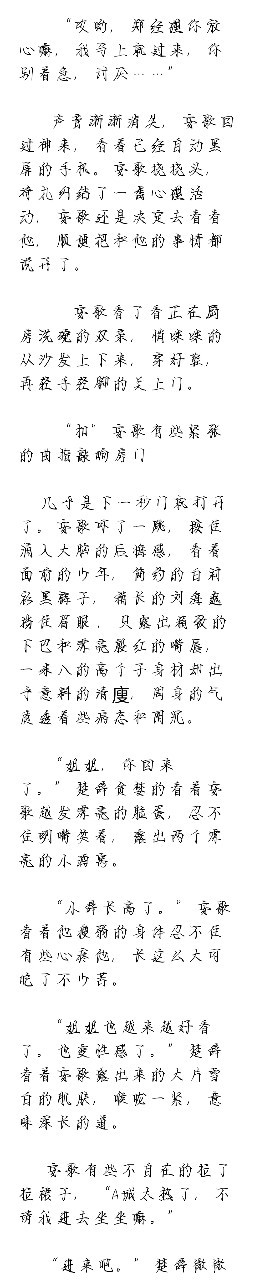 “哎呦，郑经理你放
心嘛，我马上就过来，你
别着急，讨厌……”
声音渐渐消失，安歌回
过神来，看着已经自动黑
屏的手机。安歌挠挠头，
待在纠结了一番心理活
动，安歌还是决定去看看
他，顺便把和他的事情都
说开了。
安歌看了看正在厨
房洗碗的双亲，悄咪咪的
从沙发上下来，穿好鞋，
再轻手轻脚的关上门。
“扣”安歌有些紧张
的曲指敲响房门
几乎是下一秒门就打开
了。安歌吓了一跳，按住
涌入大脑的后撤感，看着
面前的少年，简约的白衬
衫黑裤子，稍长的刘海遮
挡住眉眼，只露出瘦弱的
下巴和漂亮殷红的嘴唇，
一米八的高个子身材却出
乎意料的清廋，周身的气
度透着些病态和阴沉。
“姐姐，你回来
了。”楚舜贪婪的看着安
歌越发漂亮的脸蛋，忍不
住咧嘴笑着，露出两个漂
亮的小酒窝。
“小舜长高了。”安歌
看着他瘦弱的身体忍不住
有些心疼他，长这么大可
吃了不少苦。
“姐姐也越来越好看
了。也更性感了。”楚舜
看着安歌露出来的大片雪
白的肌肤，喉咙一紧，意
味深长的道。
安歌有些不自在的拉了
拉裙子，“A城太热了，不
请我进去坐坐嘛。”
“进来吧。”楚舜微微